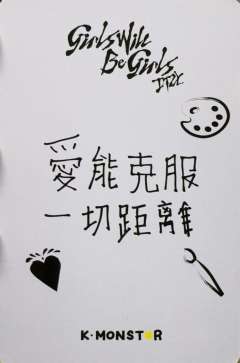 Girls Will
Be Girls
ITZY
愛能克服
一切距離
K·MONSTAR